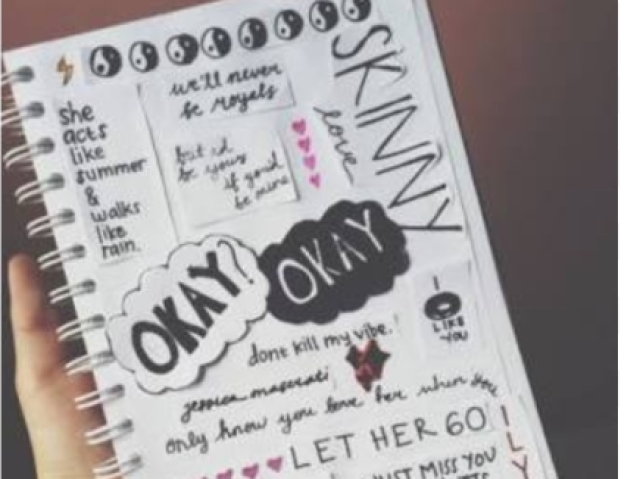 SKINNY
love
we'll never
be royals
she
acts
like
summer
&
walks
like
rain.
but i'd
be yours
if you'd
be mine
OKAY?
OKAY
I
LIKE
YOU
dont kill my vibe.!
jessica
only know you love her when you
LET HER GO
I
L
Y
JUST MISS YOU